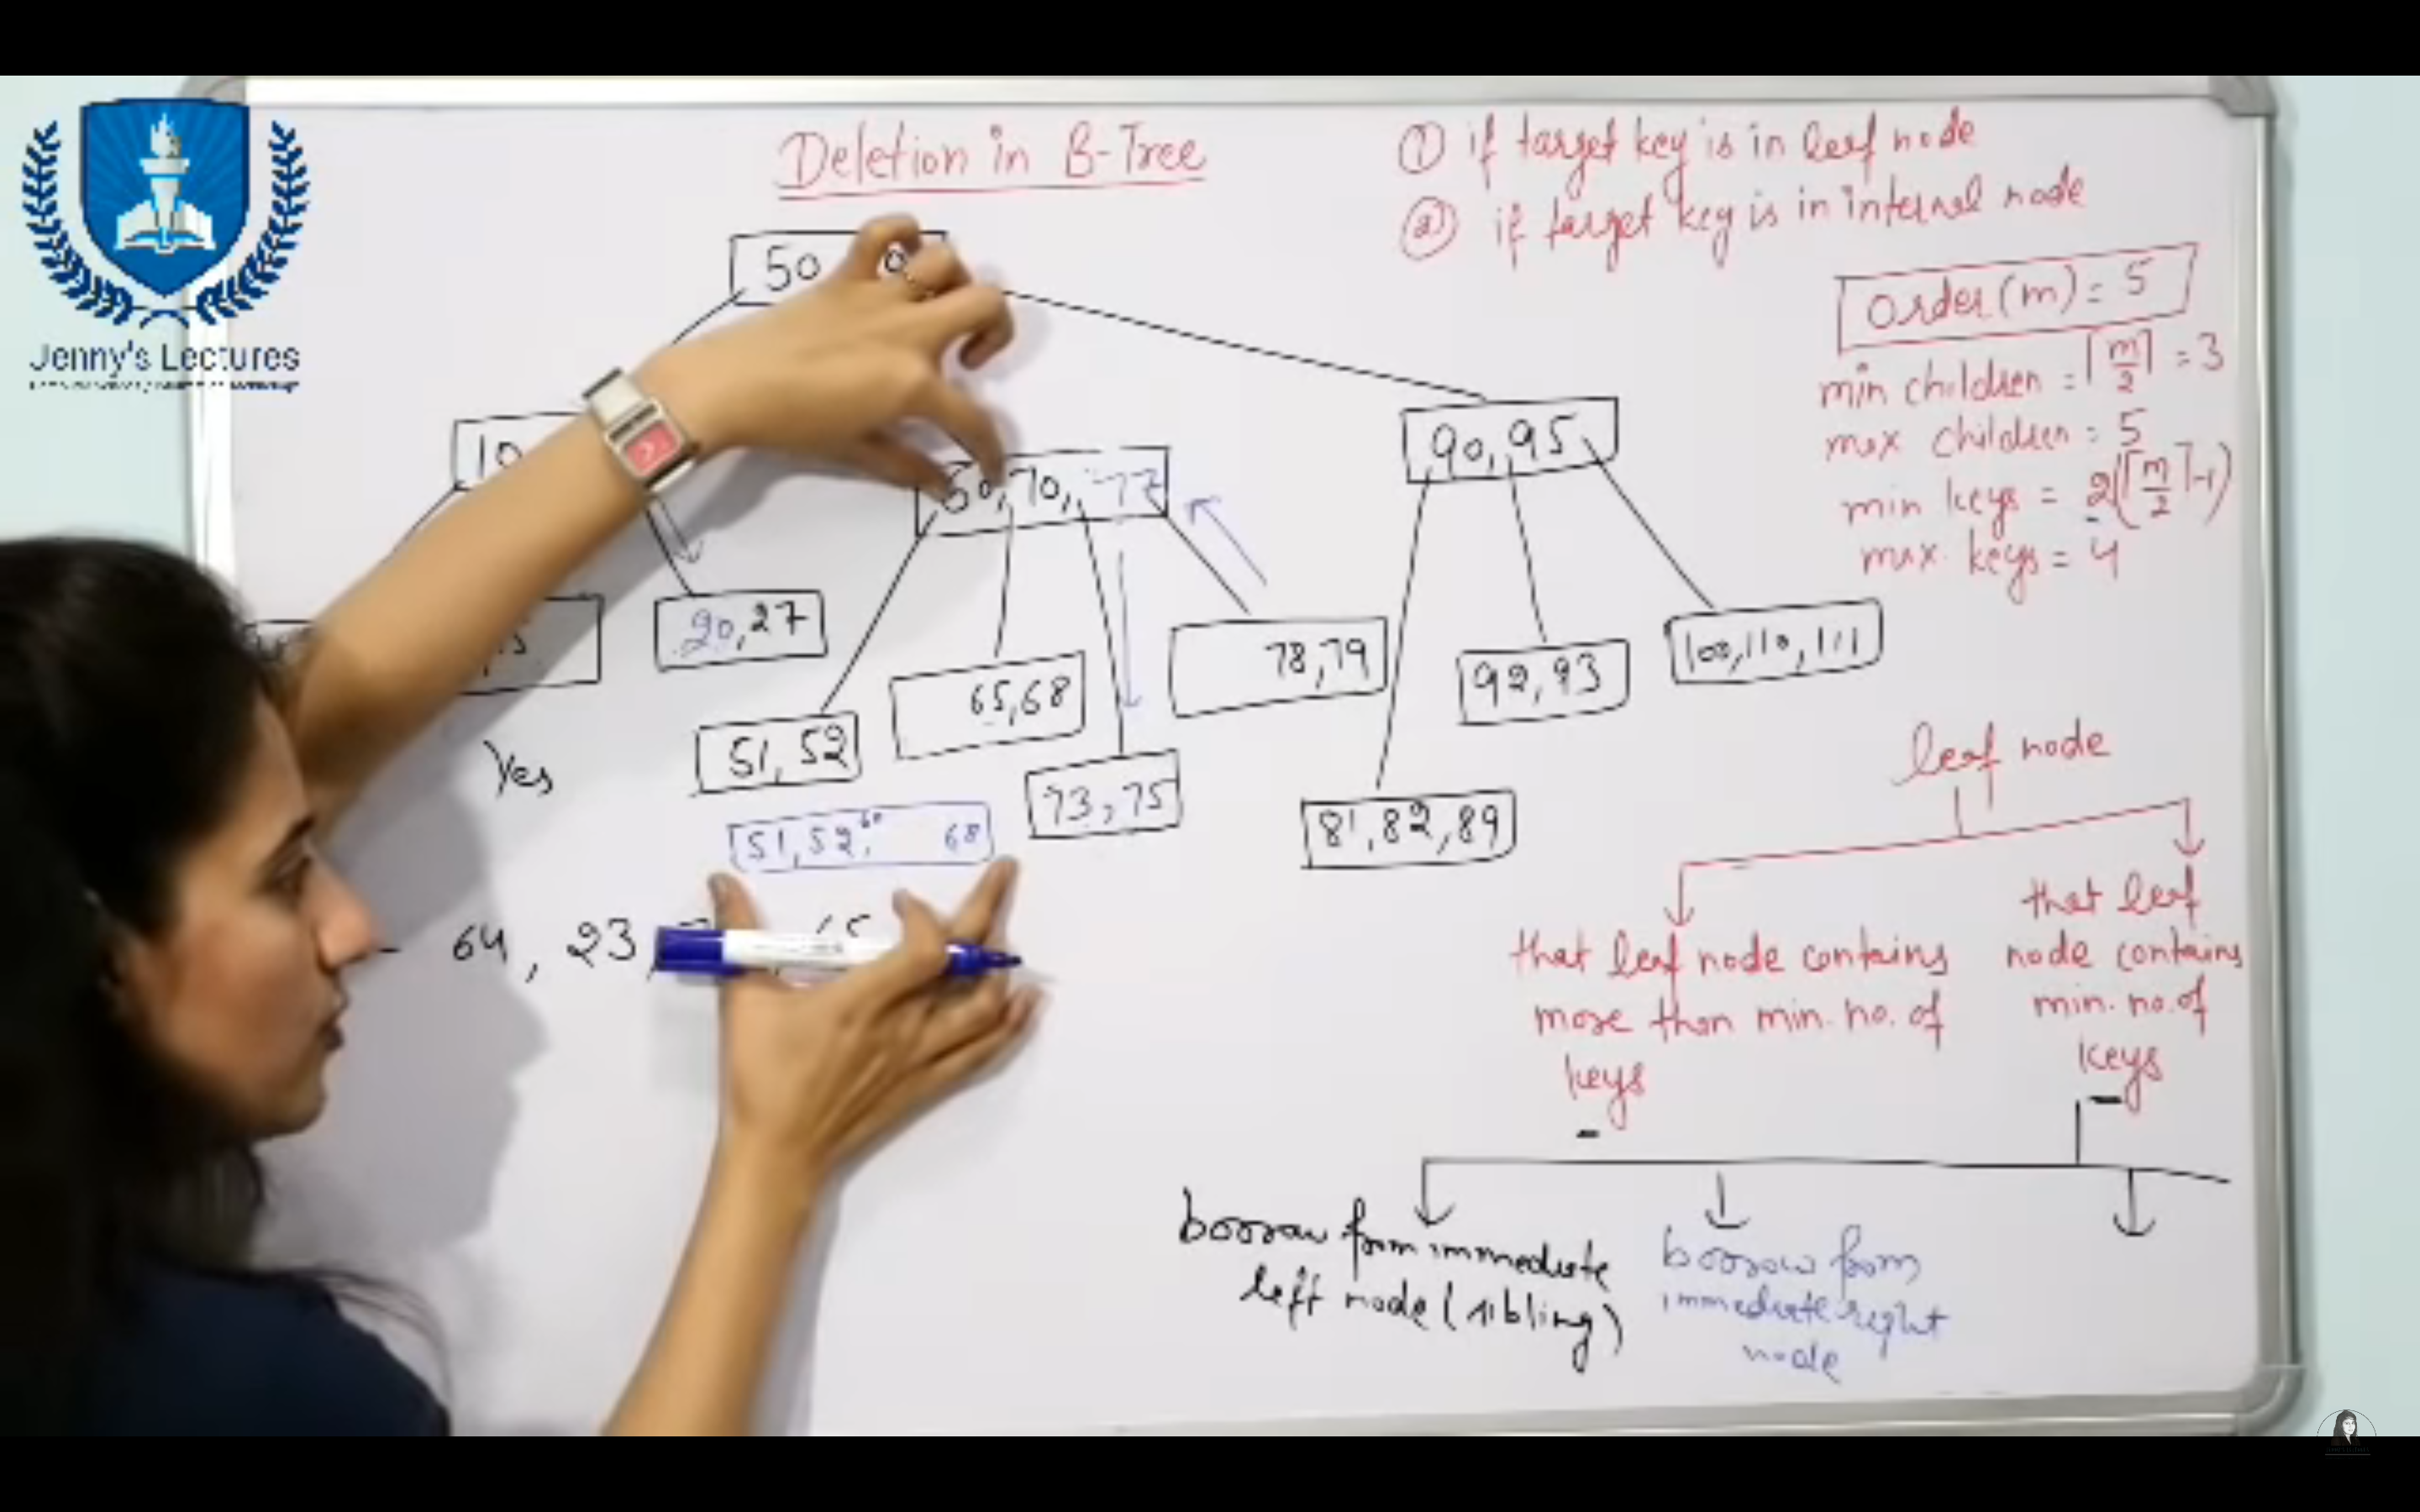 Jenny's Lectures
Deletion in B-Tree
① if target key is in leaf node
② if target key is in internal node
Order(m) = 5
min children = ⌈m/2⌉ = 3
max children = 5
min keys = 2(⌈m/2⌉-1)
max. keys = 4
50
10
60,70, 77
90,95
20,27
51, 52
65,68
73,75
78,79
81,82,89
92,93
100,110,111
Yes
51,52,60 68
64, 23,
leaf node
that leaf node contains
more than min. no. of
keys
that leaf
node contains
min. no. of
keys
borrow from immediate
left node (sibling)
borrow from
immediate right
node